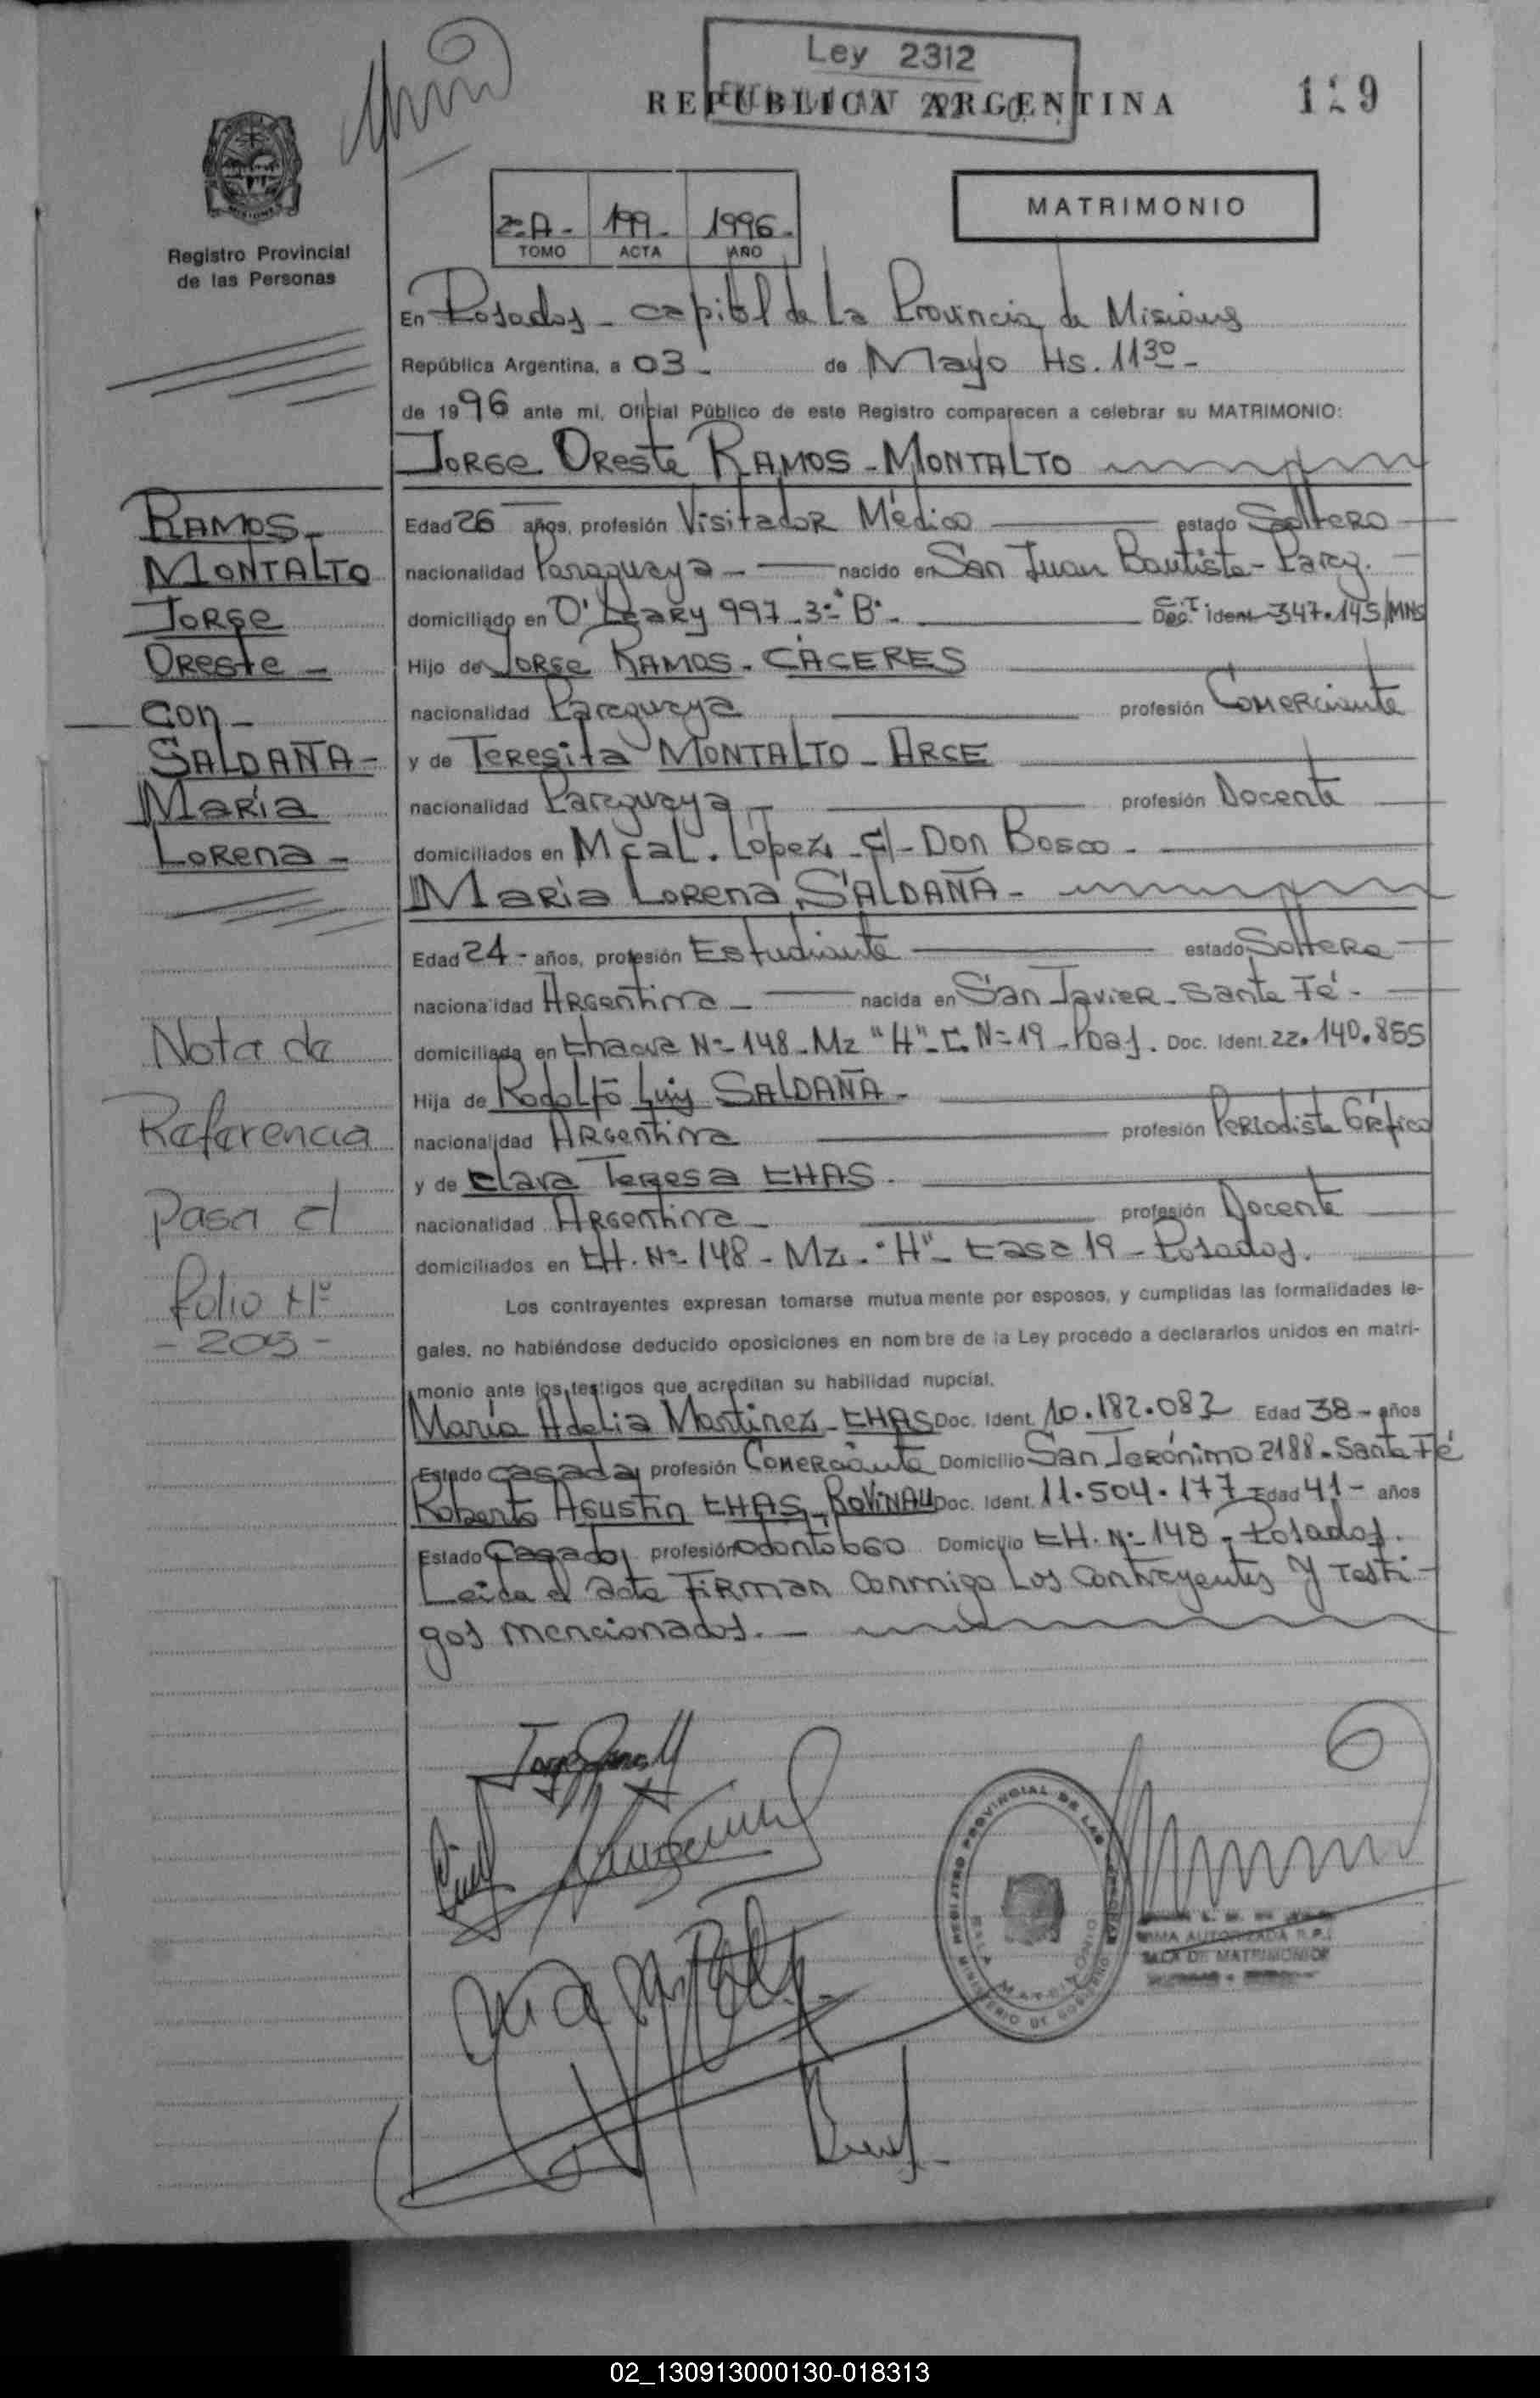 Ley 2312
REPUBLICA ARGENTINA
129
MISIONES
Registro Provincial
de las Personas
2º A - 199 - 1996 -
TOMO ACTA AÑO
MATRIMONIO
En Posadas - capital de La Provincia de Misiones
República Argentina, a 03 - de Mayo Hs. 11 30 -
de 1996 ante mi, Oficial Público de este Registro comparecen a celebrar su MATRIMONIO:
Jorge Oreste RAMOS - MONTALTO
RAMOS -
MONTALTO
Jorge
Oreste -
con -
SALDAÑA -
María
Lorena -
Edad 26 años, profesión Visitador Médico estado Soltero
nacionalidad Paraguaya - nacido en San Juan Bautista - Parag.
domiciliado en O'Leary 997 - 3º "B" - C.I. Doc. Ident. 347.145/MNS
Hijo de Jorge RAMOS - CÁCERES
nacionalidad Paraguaya profesión Comerciante
y de Teresita MONTALTO - ARCE
nacionalidad Paraguaya - profesión Docente
domiciliados en Mcal. López c/- Don Bosco -
María Lorena SALDAÑA -
Edad 24 - años, profesión Estudiante estado Soltera
nacionalidad Argentina - nacida en San Javier - Santa Fé -
domiciliada en Chacra Nº 148 - Mz "H" - C. Nº 19 - Pdas. Doc. Ident. 22.140.855
Hija de Rodolfo Luis SALDAÑA -
nacionalidad Argentina profesión Periodista Gráfico
y de Clara Teresa CHAS.
nacionalidad Argentina - profesión Docente
domiciliados en CH. Nº 148 - Mz. "H" - Casa 19 - Posadas.
Nota de
Referencia
Pasa al
Folio Nº
- 205 -
Los contrayentes expresan tomarse mutuamente por esposos, y cumplidas las formalidades le-
gales, no habiéndose deducido oposiciones en nombre de la Ley procedo a declararlos unidos en matri-
monio ante los testigos que acreditan su habilidad nupcial.
María Adelia Martínez - CHAS Doc. Ident. 10.182.082 Edad 38 - años
Estado casada profesión Comerciante Domicilio San Jerónimo 2188 - Santa Fé
Roberto Agustín CHAS - ROVINAU Doc. Ident. 11.504.177 Edad 41 - años
Estado Casado profesión odontólogo Domicilio CH. Nº 148 - Posadas.
Leida el acta Firman conmigo Los contrayentes y Testi-
gos mencionados. -
REGISTRO PROVINCIAL DE LAS PERSONAS
SALA MATRIMONIO
MINISTERIO DE GOBIERNO
FIRMA AUTORIZADA R.P.
SALA DE MATRIMONIOS
02_130913000130-018313